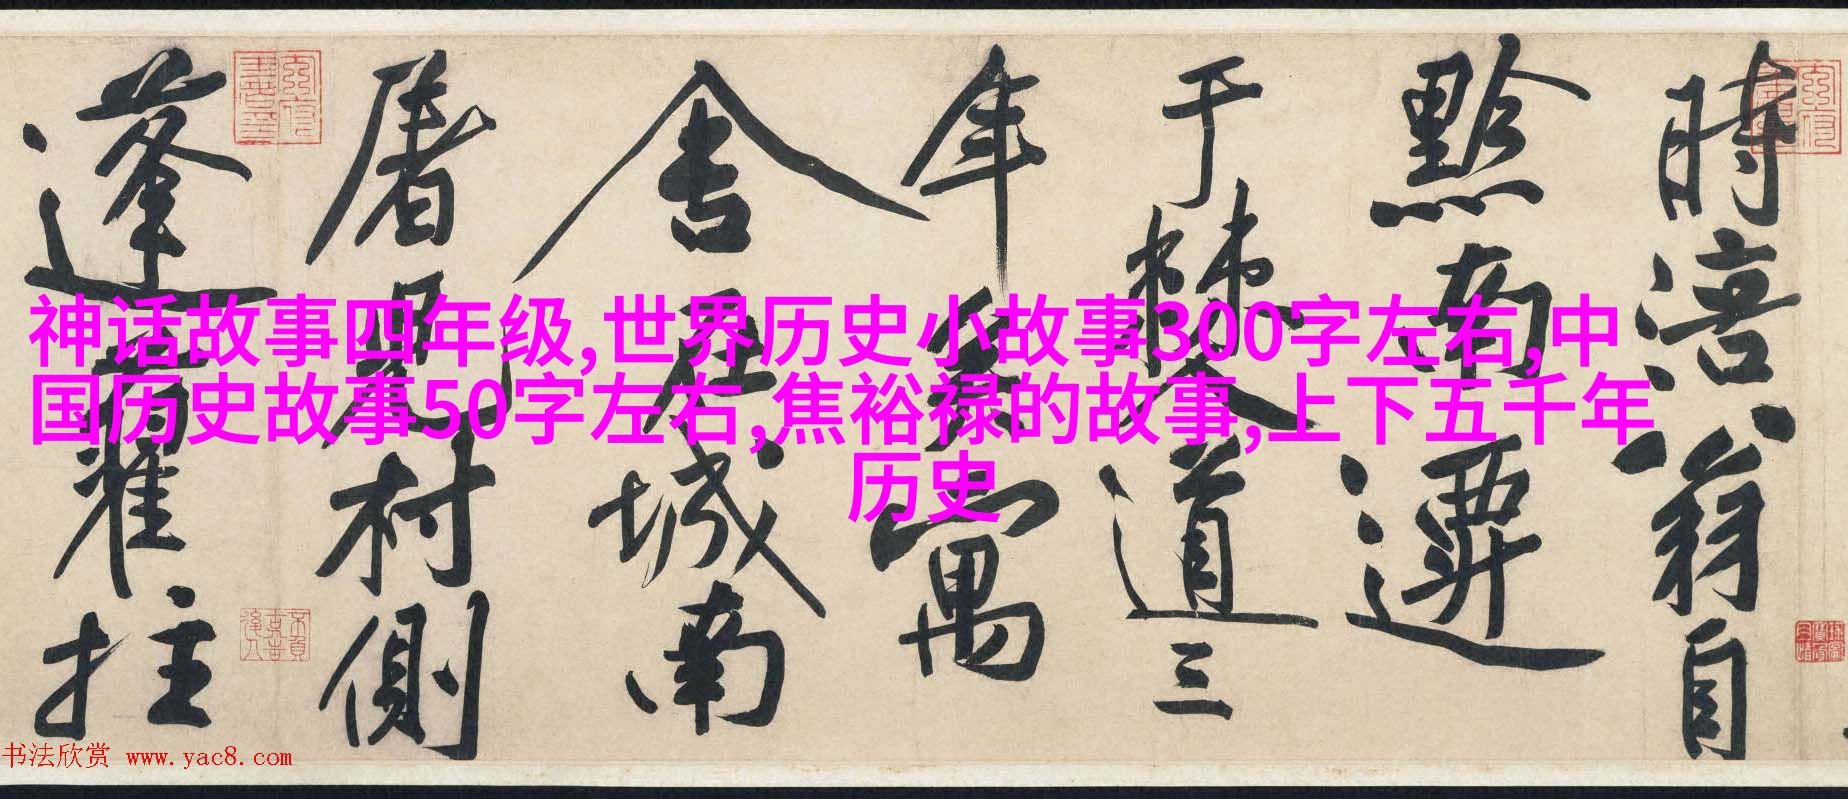 神话故事四年级,世界历史小故事300字左右,中
国历史故事50字左右,焦裕禄的故事,上下五千年
历史
時涪翁自
黔南遷
于僰道三
年矣寓
舍在城南
屠兒村側
蓬藋拄
书法欣赏 www.yac8.com